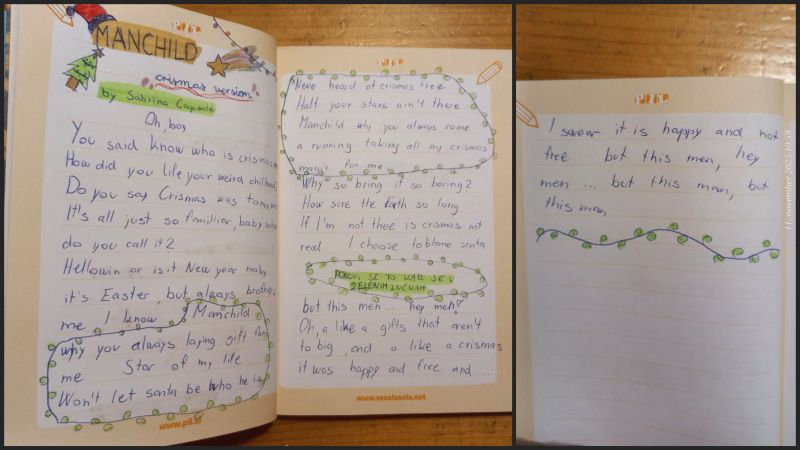 MANCHILD
crismas version!
by Sabrina Carpente
Oh, boy
You said know who is crismas
How did you life your weird childhood
Do you say Crismas was tomorow
It's all just so famillior, baby what
do you call it?
Hellowin or is it New year maby
it's Easter, but always brothers
me, I know
Manchild
why you always laying gift for
me Star of my life
Won't let santa be who he is
www.pil.si
PIL
Never heard of crismas tree
Half your stars ain't there
Manchild why you always come
a running taking all my crismas
magic for me
Why so bring it so boring?
How sure the Earth so long
If I'm not thoe is crismas not
real I choose to blame senta
PONOVI SE TO KAR JE V
ZELENIH LUČKAH
but this men... hey men!?
Oh, a like a gifts that aren't
to big, and a like a crismas
it was happy and free and ...
www.veselasola.net
PIL
I swear it is happy and not
free but this men, hey
men ... but this man, but
this man
11. november 2025 19:59